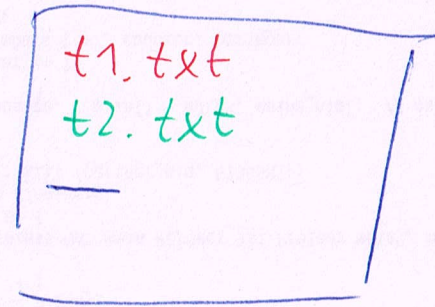 t1. txt
t2. txt